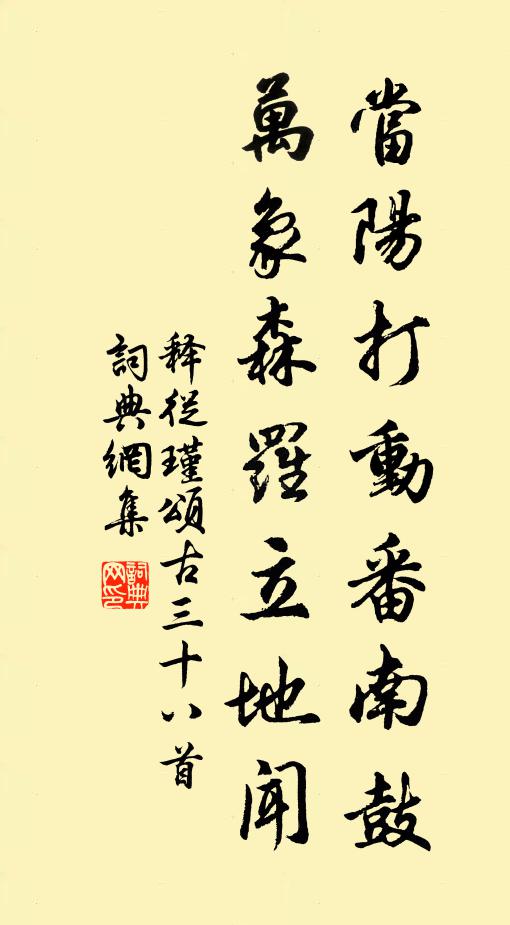 當陽打動番南鼓
萬象森羅立地聞
释從瑾頌古三十八首
詞典網集
詞典网印